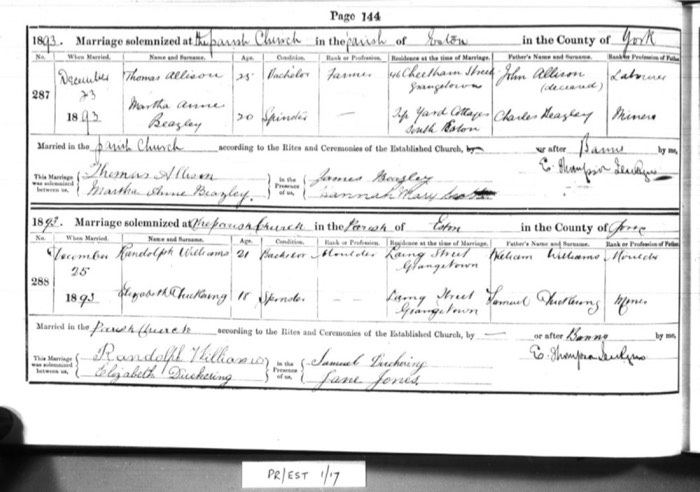 Page 144
1893. Marriage solemnized at the parish Church in the parish of Eston in the County of York
No. When Married. Name and Surname. Age. Condition. Rank or Profession. Residence at the time of Marriage. Father's Name and Surname. Rank or Profession of Father.
287 December 23 1893 Thomas Allison 25 Bachelor Farmer 46 Cheetham Street Grangetown John Allison (deceased) Labourer
Martha Anne Beagley 20 Spinster — Yard Cottages South Eston Charles Beagley Miner
Married in the parish Church according to the Rites and Ceremonies of the Established Church, by or after Banns by me,
This Marriage was solemnized between us, Thomas Allison in the Presence of us, James Beagley E. Thompson Jenkyns
Martha Anne Beazley. Hannah Mary
1893. Marriage solemnized at the parish Church in the Parish of Eston in the County of York
No. When Married. Name and Surname. Age. Condition. Rank or Profession. Residence at the time of Marriage. Father's Name and Surname. Rank or Profession of Father.
288 December 25 1893 Randolph Williams 21 Bachelor Moulder Laing Street Grangetown William Williams Moulder
Elizabeth Duckering 18 Spinster — — Laing Street Grangetown Samuel Duckering Miner
Married in the Parish Church according to the Rites and Ceremonies of the Established Church, by — or after Banns by me,
This Marriage was solemnized between us, Randolph Williams in the Presence of us, Samuel Duckering E. Thompson Jenkyns
Elizabeth Duckering Jane Jones.
PR/EST 1/17